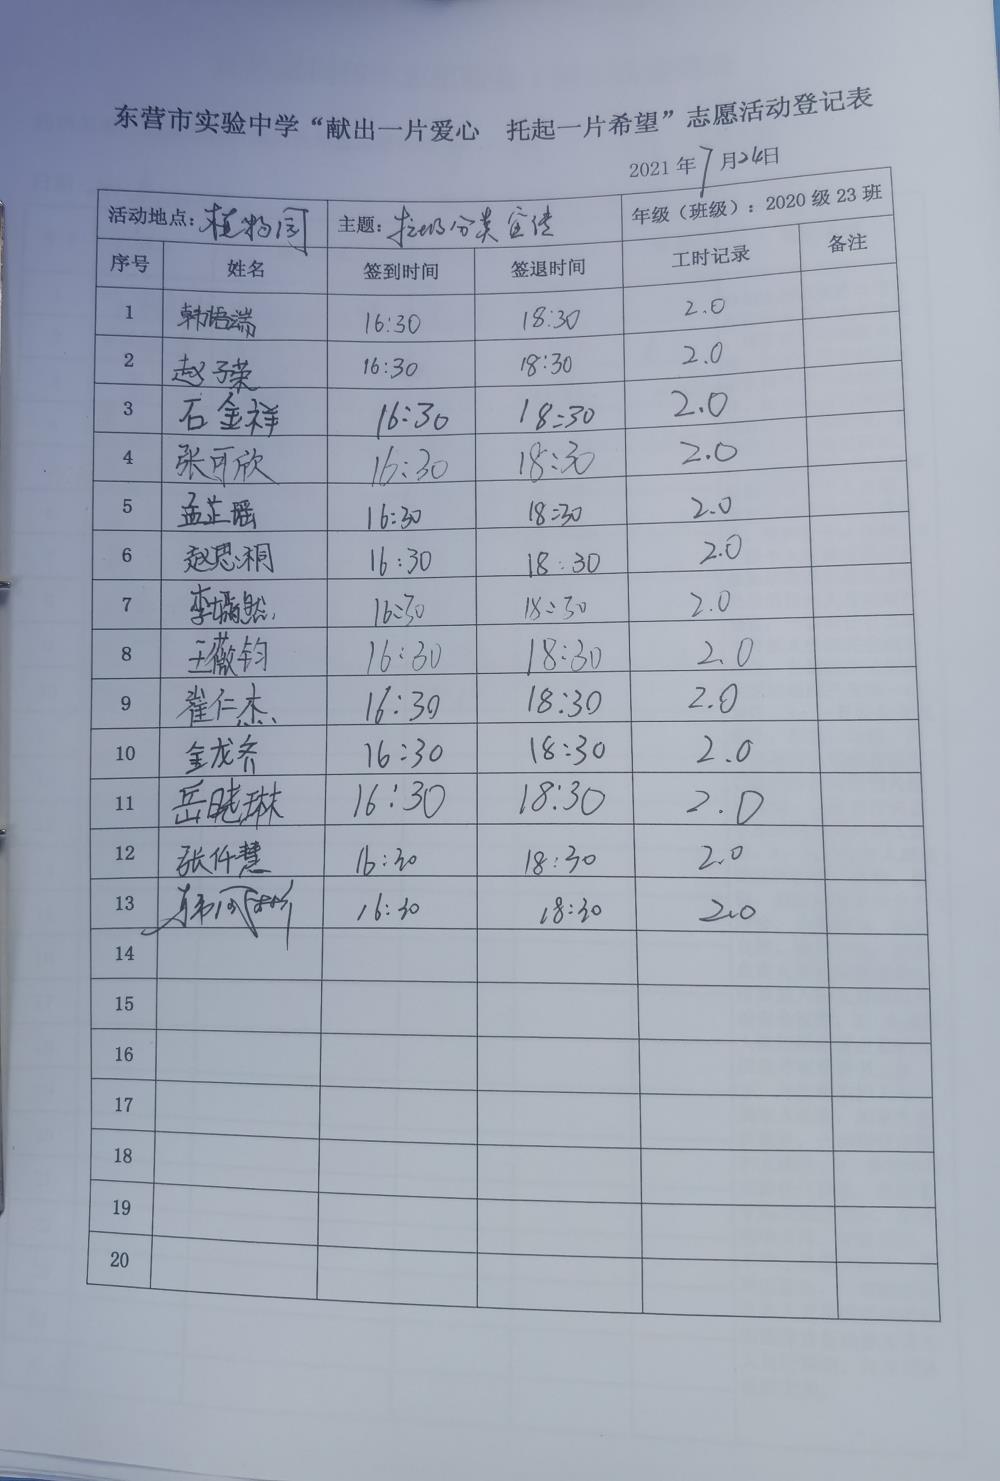 东营市实验中学“献出一片爱心 托起一片希望”志愿活动登记表
2021 年 7 月 24 日
活动地点: 植物园 主题: 垃圾分类宣传 年级（班级）: 2020 级 23 班
序号 姓名 签到时间 签退时间 工时记录 备注
1 韩悟端 16:30 18:30 2.0
2 赵子荣 16:30 18:30 2.0
3 石金祥 16:30 18:30 2.0
4 张可欣 16:30 18:30 2.0
5 孟芷瑶 16:30 18:30 2.0
6 赵思桐 16:30 18:30 2.0
7 李嫣然 16:30 18:30 2.0
8 王薇钧 16:30 18:30 2.0
9 崔仁杰 16:30 18:30 2.0
10 金龙乔 16:30 18:30 2.0
11 岳晓琳 16:30 18:30 2.0
12 张仟慧 16:30 18:30 2.0
13 16:30 18:30 2.0
14
15
16
17
18
19
20